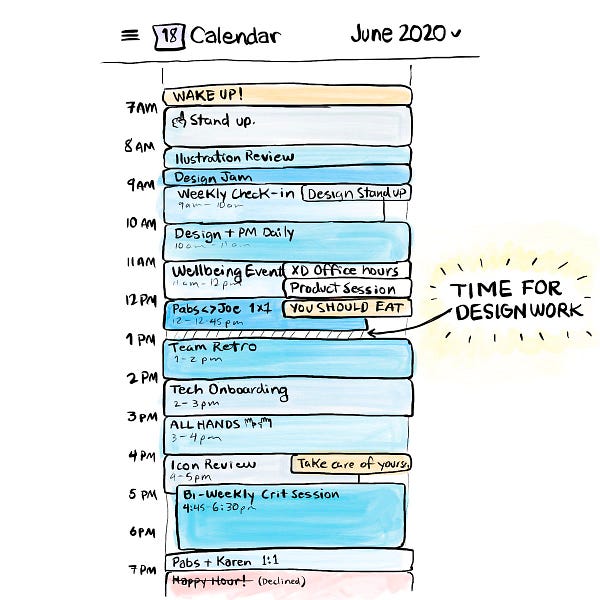 18 Calendar June 2020
WAKE UP!
7AM
Stand up.
8AM
Ilustration Review
Design Jam
9AM
Weekly Check-in Design Stand up
9am - 10am
10 AM
Design + PM Daily
10am - 11am
11AM
Wellbeing Event XD Office hours
11am - 12pm Product Session
12PM
Pabs<>Joe 1x1 YOU SHOULD EAT
12 - 12:45pm
TIME FOR
DESIGN WORK
1 PM
Team Retro
1-2pm
2 PM
Tech Onboarding
2-3pm
3PM
ALL HANDS
3-4pm
4PM
Icon Review Take care of yours
4-5pm
5 PM
Bi-Weekly Crit Session
4:45-6:30pm
6PM
Pabs + Karen 1:1
7PM
Happy Hour! (Declined)